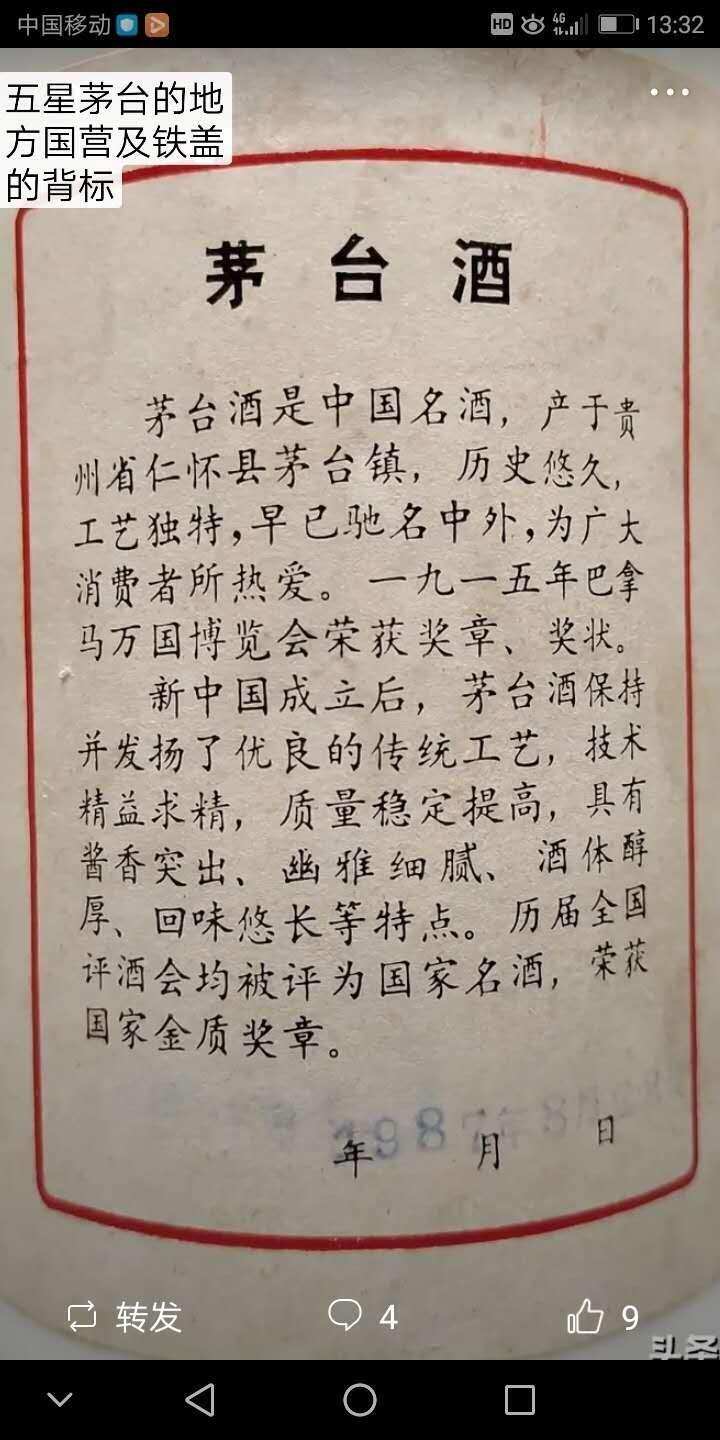 中国移动
HD 4G 13:32
五星茅台的地
方国营及铁盖
的背标
茅台酒
茅台酒是中国名酒，产于贵
州省仁怀县茅台镇，历史悠久，
工艺独特，早已驰名中外，为广大
消费者所热爱。一九一五年巴拿
马万国博览会荣获奖章、奖状。
新中国成立后，茅台酒保持
并发扬了优良的传统工艺，技术
精益求精，质量稳定提高，具有
酱香突出、幽雅细腻、酒体醇
厚、回味悠长等特点。历届全国
评酒会均被评为国家名酒，荣获
国家金质奖章。
1987年8月
年 月 日
转发 4 9
头条